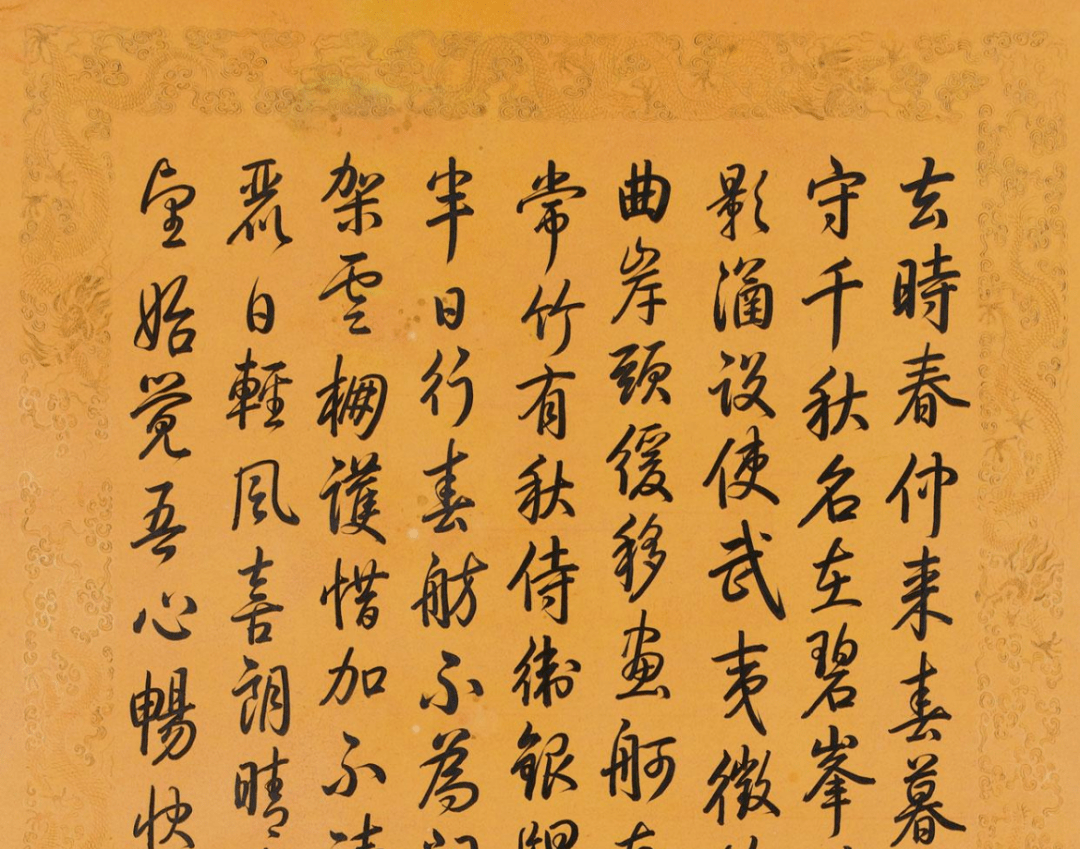 去時春仲来春暮
守千秋名在碧峯
影涵设使武夷徵
曲岸頭緩移畫舸
常竹有秋侍衛銀
半日行春舫不為
架雲棚護惜加不
麗日輕風喜朗晴
望始覺吾心暢快